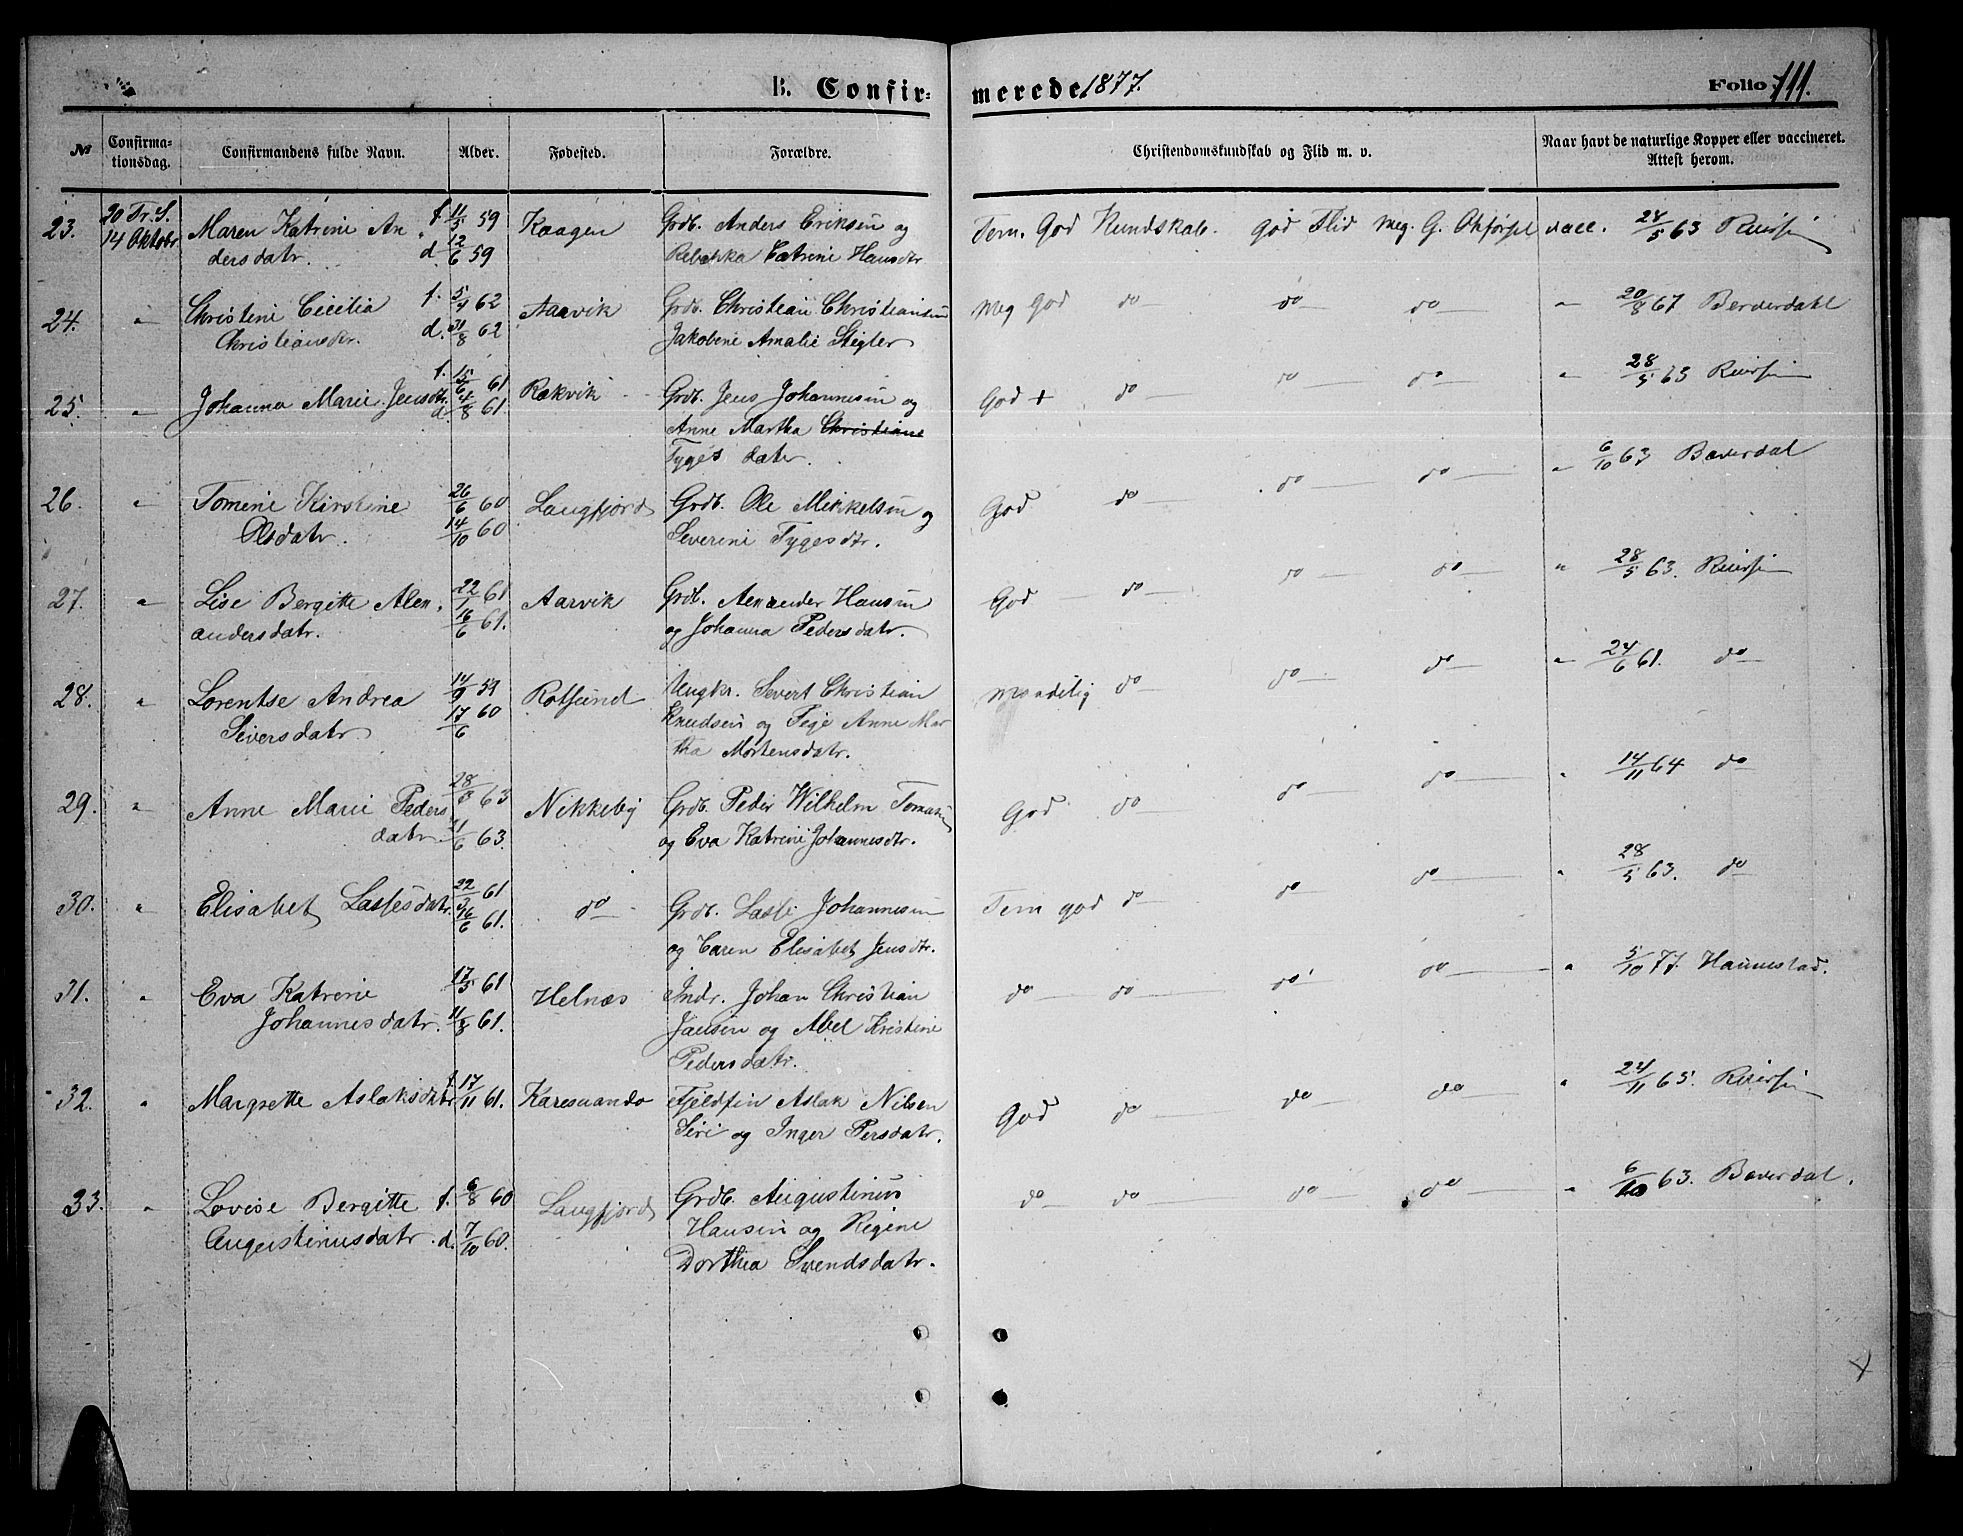 B. Confirmerede 1877.
Folio 111.
№ Confirmationsdag. Confirmandens fulde Navn. Alder. Fødested. Forældre. Christendomskundskab og Flid m. v. Naar havt de naturlige Kopper eller vaccineret. Attest herom.
23. 20 Tr. S. Maren Katrine An f. 11/5 59 Kaagen Grdb. Anders Eriksen og Tem. God Kundskab. God Flid Meg. G. Opførsel vacc. 24/5 63 Reiersen
14 Oktobr dersdatr. d. 12/6 59 Rebekka Catrine Hansdtr
24. " Christine Cecilia f. 5/4 62 Aarvik Grdb. Christian Christiansen Meg God do do do " 20/8 67 Berverdahl
Christiansdtr. d. 31/8 62 Jakobine Amalie Stigler
25. " Johanna Marie Jensdtr. f. 15/6 61 Rakvik Grdb. Jens Johannesen og God + do do do " 28/5 63 Reiersen
d. 4/8 61. Anne Martha Christiane
Tyges datr.
26. " Tomine Kirstine 26/6 60 Langfjord Grdb. Ole Mikkelsen og God do do do " 6/10 63 Bæverdal
Olsdatr. 14/10 60 Severine Tygesdtr.
27. " Lise Bergitte Alex 22/1 61 Aarvik Grdb. Alexander Hansen God do do do " 28/5 63. Reiersen
andersdatr. 16/6 61. og Johanna Pedersdatr.
28. " Lorentse Andrea 14/9 59 Rotsund Ungkr. Severt Christian Maadelig do do do " 24/6 61. do
Seversdatr. 17/6 60 Knudsen og Pige Anne Mar
tha Mortensdatr.
29. " Anne Marie Peders 63 Nikkeby Grdb. Peder Wilhelm Tomasen God do do do " 14/11 64 do
datr. 21/6 63. og Eva Katrine Johannesdtr.
30. " Elisabet Lassesdatr. 22/3 61 do Grdb. Lasse Johannesen Tem god do do do " 28/5 63. do
16/6 61. og Caren Elisabet Jensdtr.
31. " Eva Katrine 17/5 61 Helnæs Indr. Johan Christian do do do do " 5/10 77 Hannestad.
Johannesdatr. 11/8 61. Jansen og Abel Kristine
Pedersdatr.
32. " Margrette Aslaksdatr f. 17/11 61. Karesuando Fjeldfin Aslak Nilsen God do do do " 24/11 65. Reiersen
Siri og Inger Persdatr.
33. " Lovise Bergitte f. 6/8 60 Langfjord Grdb. Augustinus do do do do " 6/10 63. Bæverdal.
Augustinusdatr. d. 7/10 60. Hansen og Regine
Dorthea Svendsdatr.